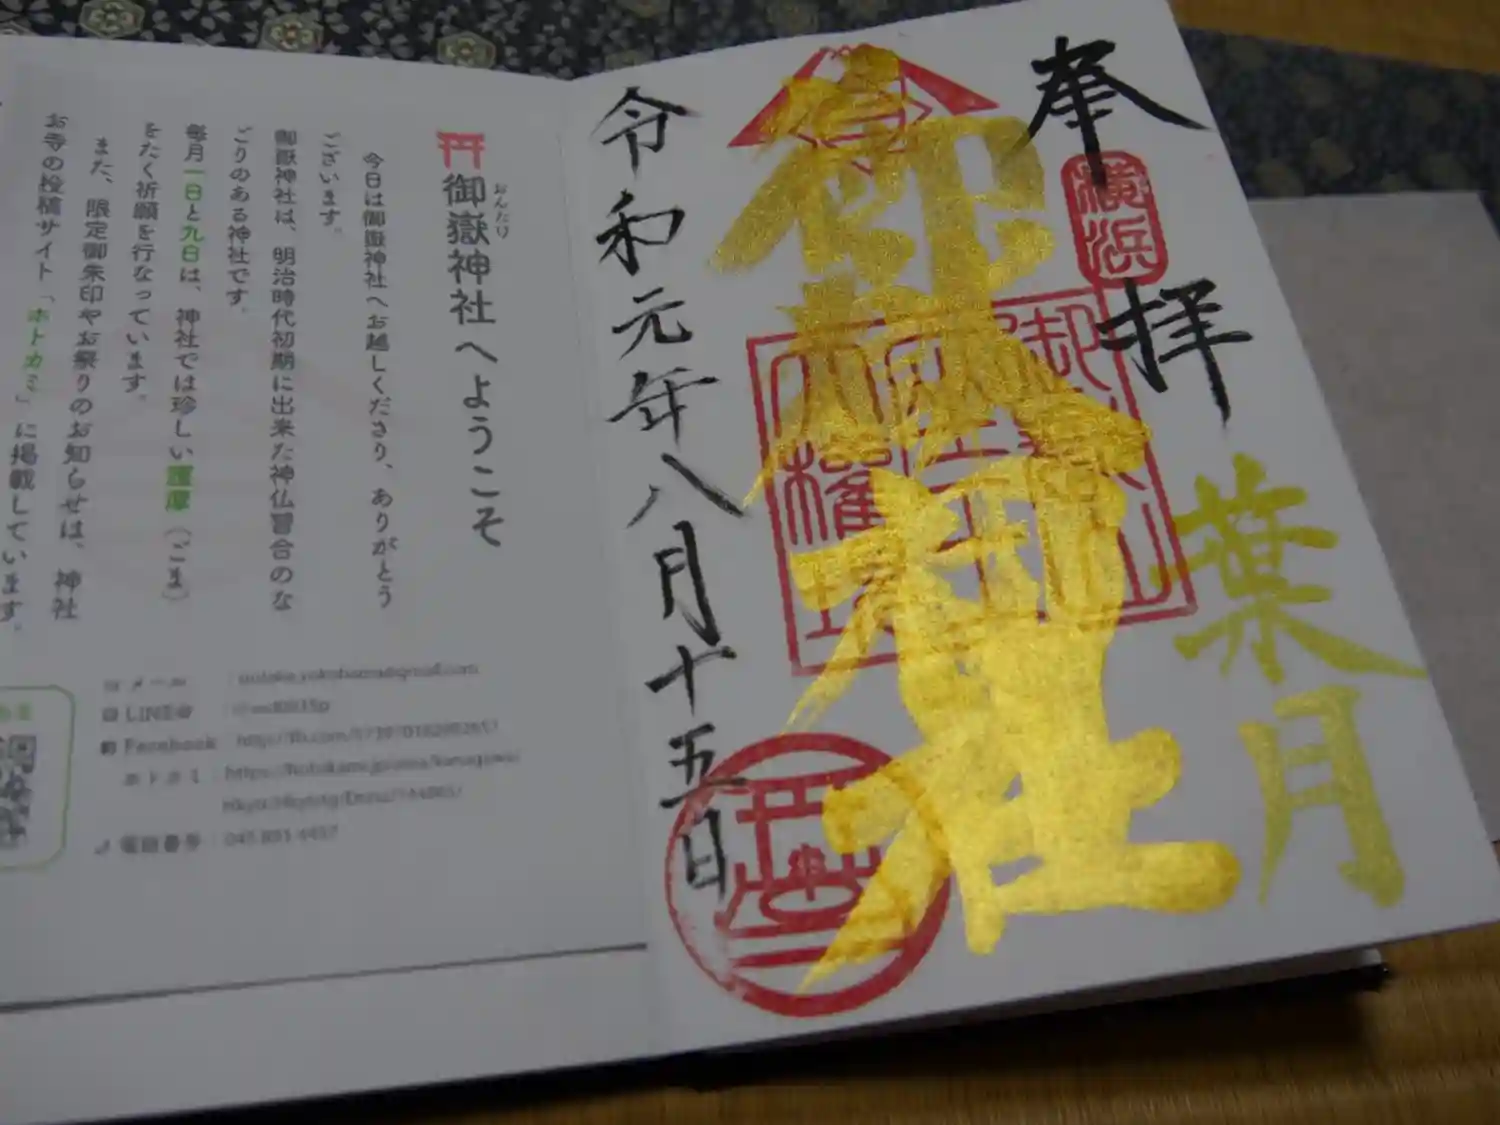 奉拝
横浜
葉月
御嶽神社
御嶽山
座王
大権現
令和元年八月十五日
御嶽神社へようこそ
おんたけ
今日は御嶽神社へお越しくださり、ありがとう
ございます。
御嶽神社は、明治時代初期に出来た神仏習合のな
ごりのある神社です。
毎月一日と九日は、神社では珍しい護摩（ごま）
をたく祈願を行なっています。
また、限定御朱印やお祭りのお知らせは、神社
お寺の投稿サイト「ホトカミ」に掲載しています。
メール
LINE@
Facebook
ホトカミ
電話番号